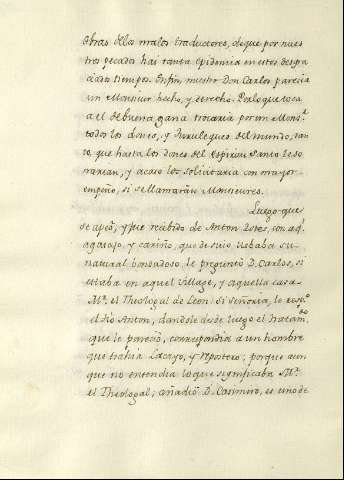 obras de los malos traductores, de que por nues
tros pecados hai tanta epidemia en estos desgra
ciados tiempos. Enfin, nuestro Don Carlos parecia
un Monsieur hecho, y derecho. Por lo que toca
a el de buena gana trocaria por un Mons.r
todos los dones, y turuleques del mundo, tan
to, que hasta los dones del Espiritu Santo le so
narian, y acaso los solicitaria con mayor
empeño, si se llamaràn Monsieures.
Luego que
se apeò, y fue recibido de Anton Zotes, con aq.l
agasajo, y cariño, que de suio llebaba su
natural bondadoso, le preguntò D. Carlos, si
estaba en aquel Village, y aquella casa
M.r el Theologal de Leon. Si señoria, le resp.o
el tio Anton, dandole desde luego el tratam.to
que le pareciò, correspondia a un hombre
que trahia Lacayo, y repostero; porque aun
que no entendia lo que significaba M.r
el Theologal; añadiò D. Casimiro, es uno de